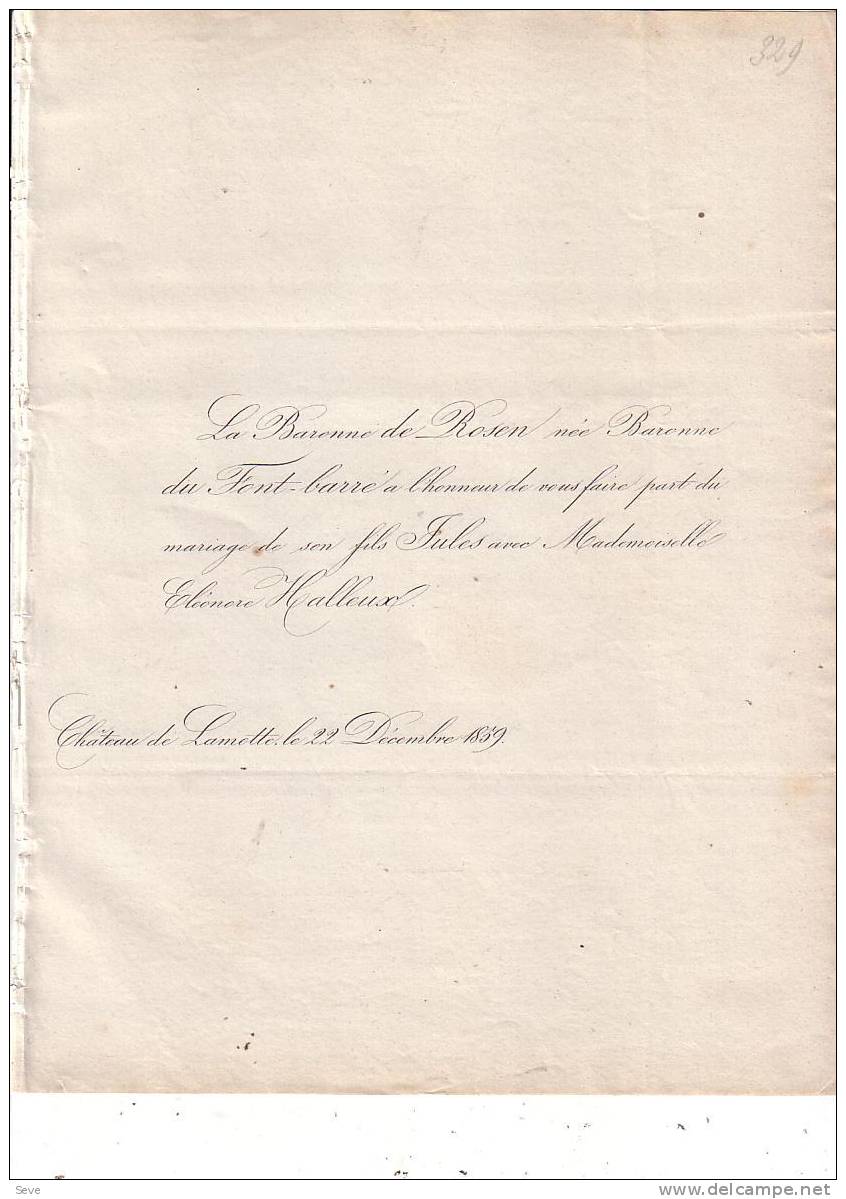 329
La Baronne de Rosen née Baronne
du Font-barré a l'honneur de vous faire part du
mariage de son fils Jules avec Mademoiselle
Eléonore Halleux.
Château de Lamotte, le 22 Décembre 1859.
Seve
www.delcampe.net